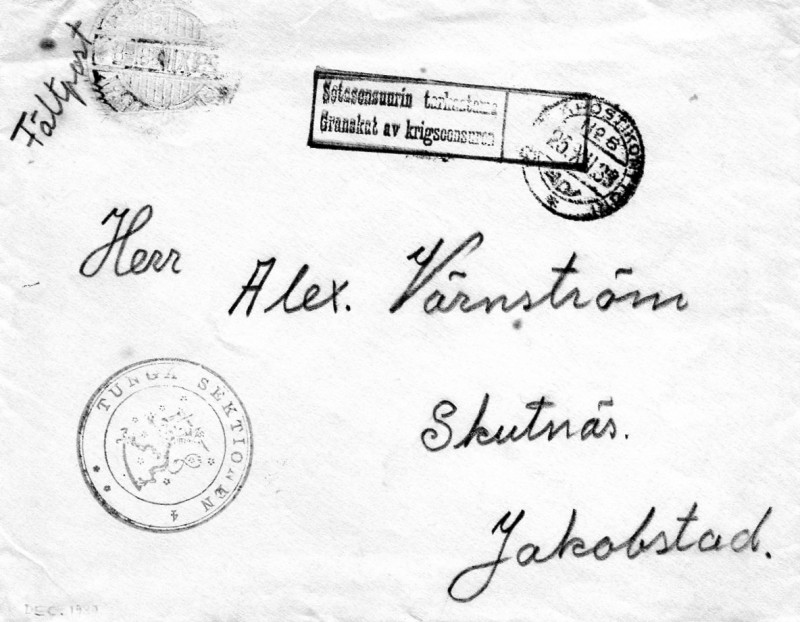 Fältpost
Sotasensuurin tarkastama
Granskat av krigscensuren
No 5
Herr
Alex. Värnström
TUNGA SEKTIONEN 4
Skutnäs.
Jakobstad.
DEC. 1939